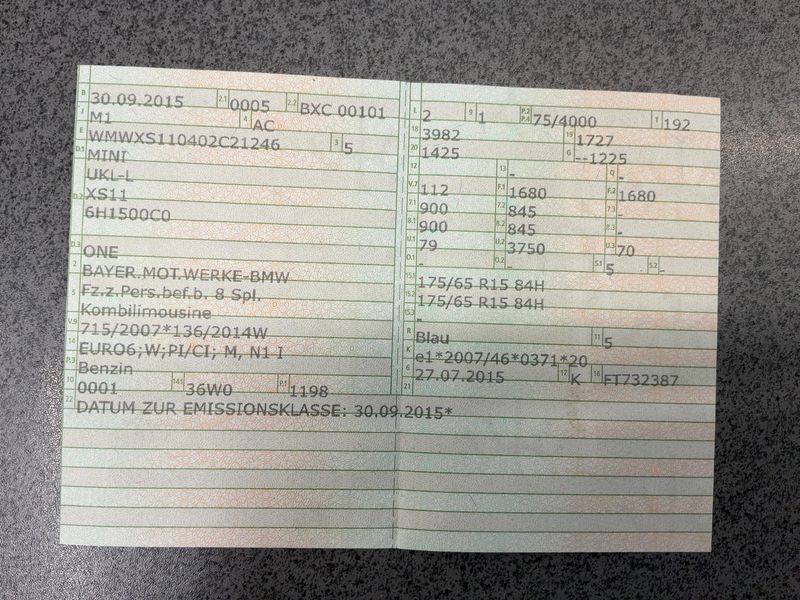 B 30.09.2015 2.1 0005 2.2 BXC 00101
J M1 4 AC
E WMWXS110402C21246 3 5
D.1 MINI
UKL-L
D.2 XS11
6H1500C0
D.3 ONE
2 BAYER.MOT.WERKE-BMW
5 Fz.z.Pers.bef.b. 8 Spl.
Kombilimousine
V.9 715/2007*136/2014W
14 EURO6;W;PI/CI; M, N1 I
P.3 Benzin
10 0001 14.1 36W0 P.1 1198
22 DATUM ZUR EMISSIONSKLASSE: 30.09.2015*
L 2 9 1 P.2 P.4 75/4000 T 192
18 3982 19 1727
20 1425 G --1225
12 - 13 - Q -
V.7 112 F.1 1680 F.2 1680
7.1 900 7.2 845 7.3 -
8.1 900 8.2 845 8.3 -
U.1 79 U.2 3750 U.3 70
O.1 - O.2 - S.1 5 S.2 -
15.1 175/65 R15 84H
15.2 175/65 R15 84H
15.3 -
R Blau 11 5
K e1*2007/46*0371*20
6 27.07.2015 17 K 16 FT732387
21